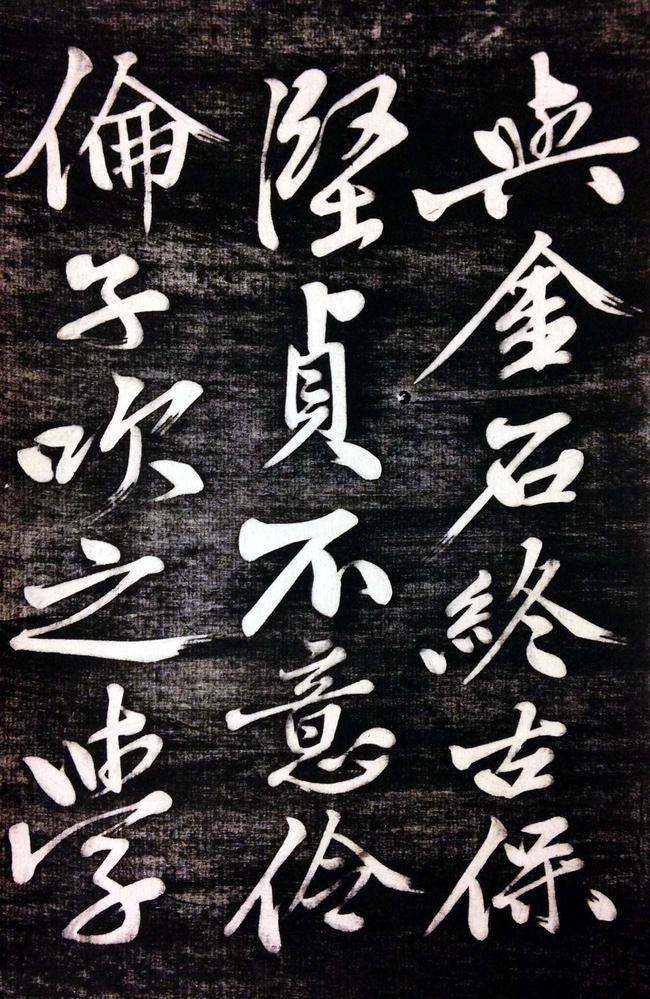 與金石終古保
堅貞不意伶
倫子吹之學